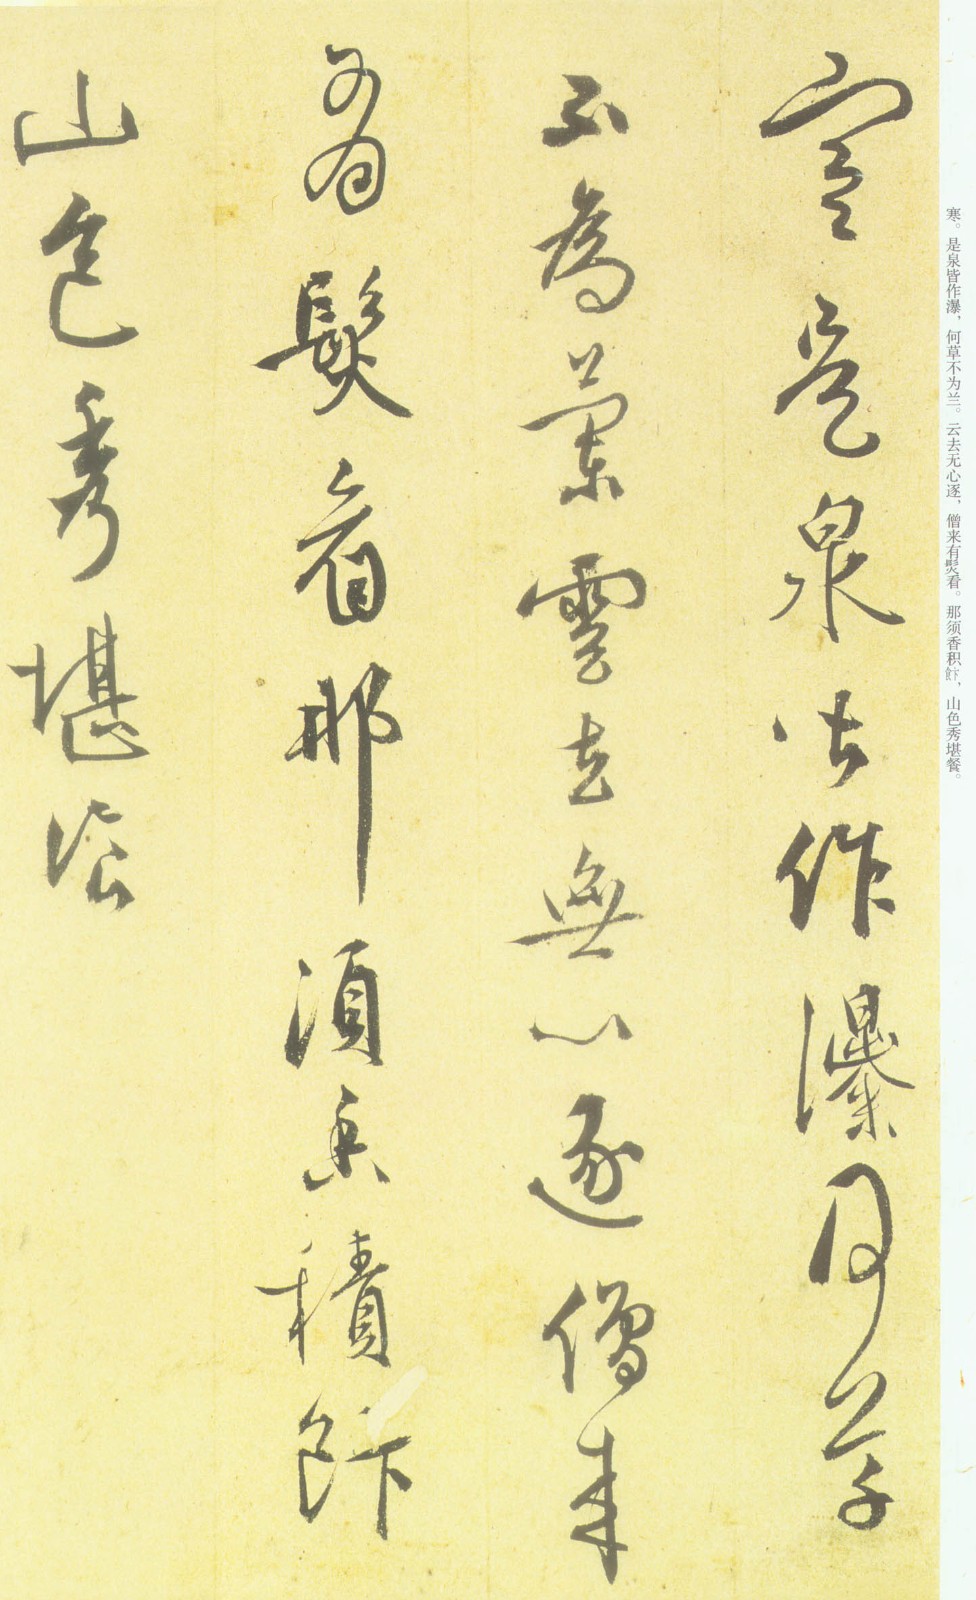 寒。是泉皆作瀑，何草不为兰。云去无心逐，僧来有髮看。那须香积飰，山色秀堪餐。
寒是泉皆作瀑何草
不為蘭雲去無心逐僧來
有髮看那須香積飰
山色秀堪飡